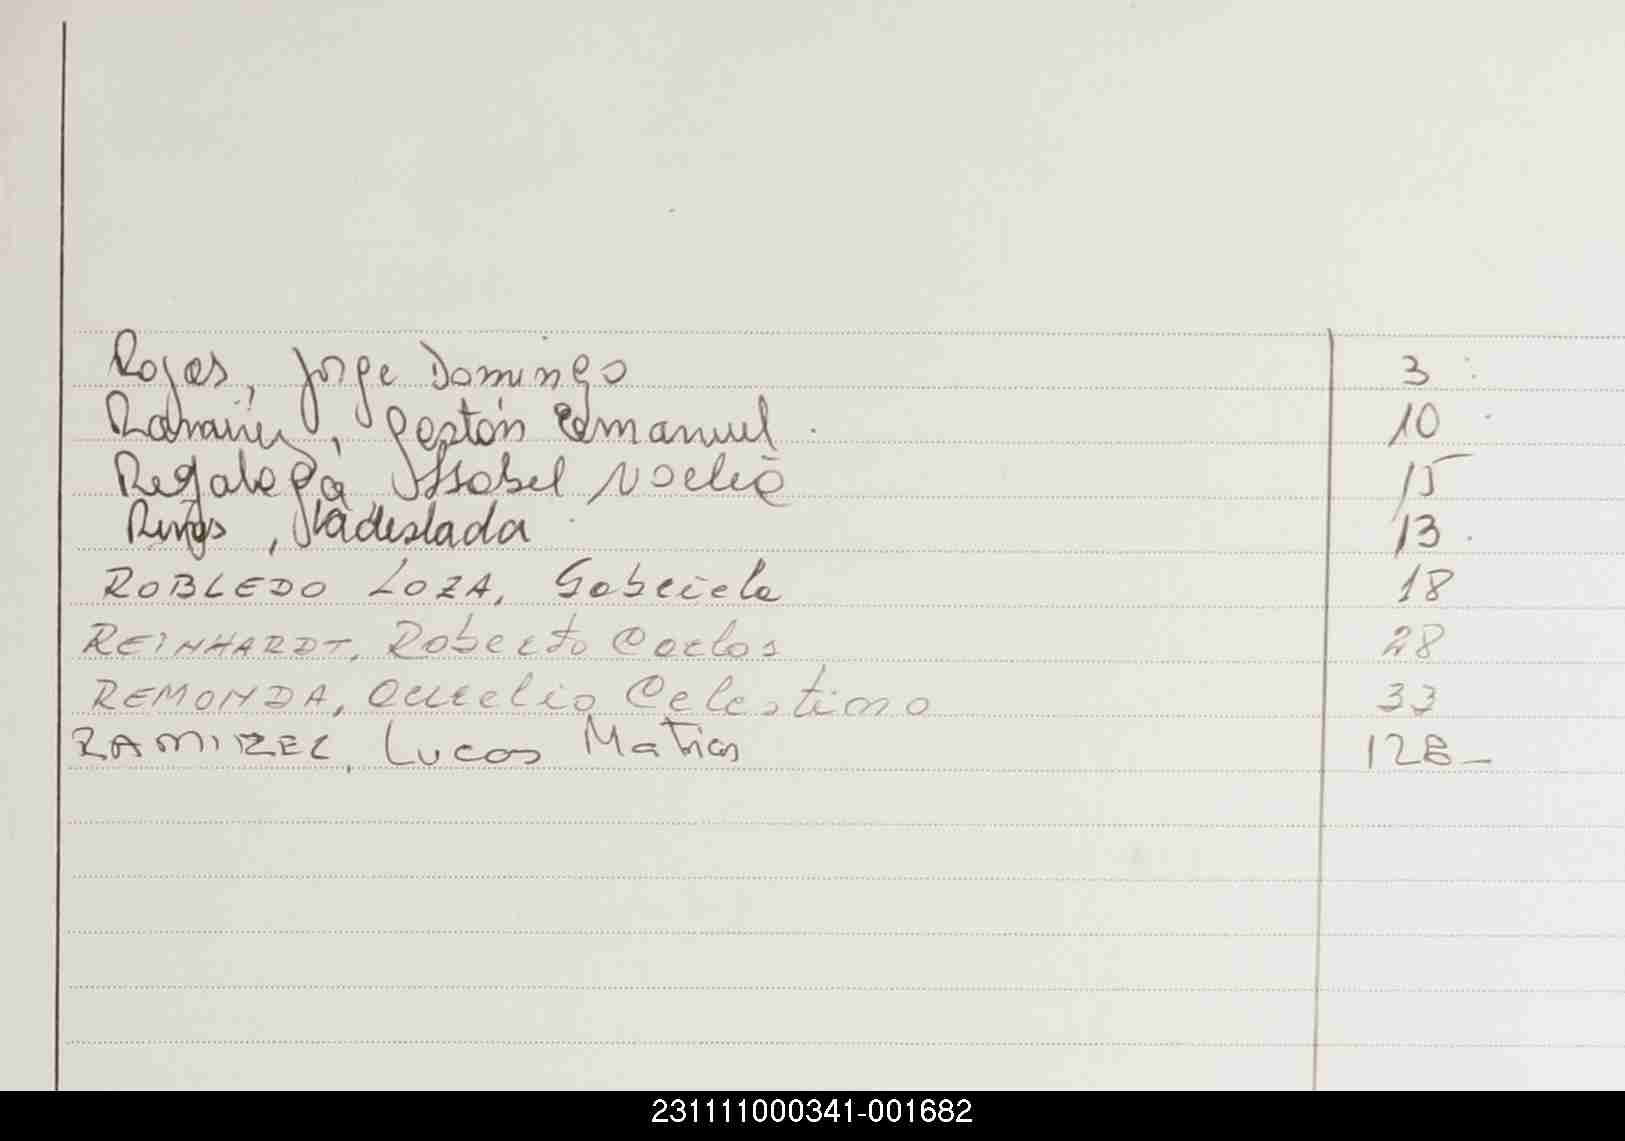 Rojas, Jorge Domingo 3
Ramirez, Gastón Emanuel 10
Isabel Noelia 15
13
ROBLEDO LOZA, Gabriela 18
REINHARDT, Roberto Carlos 28
REMONDA, Aurelio Celestino 33
RAMIREZ, Lucas Matias 128_
231111000341-001682